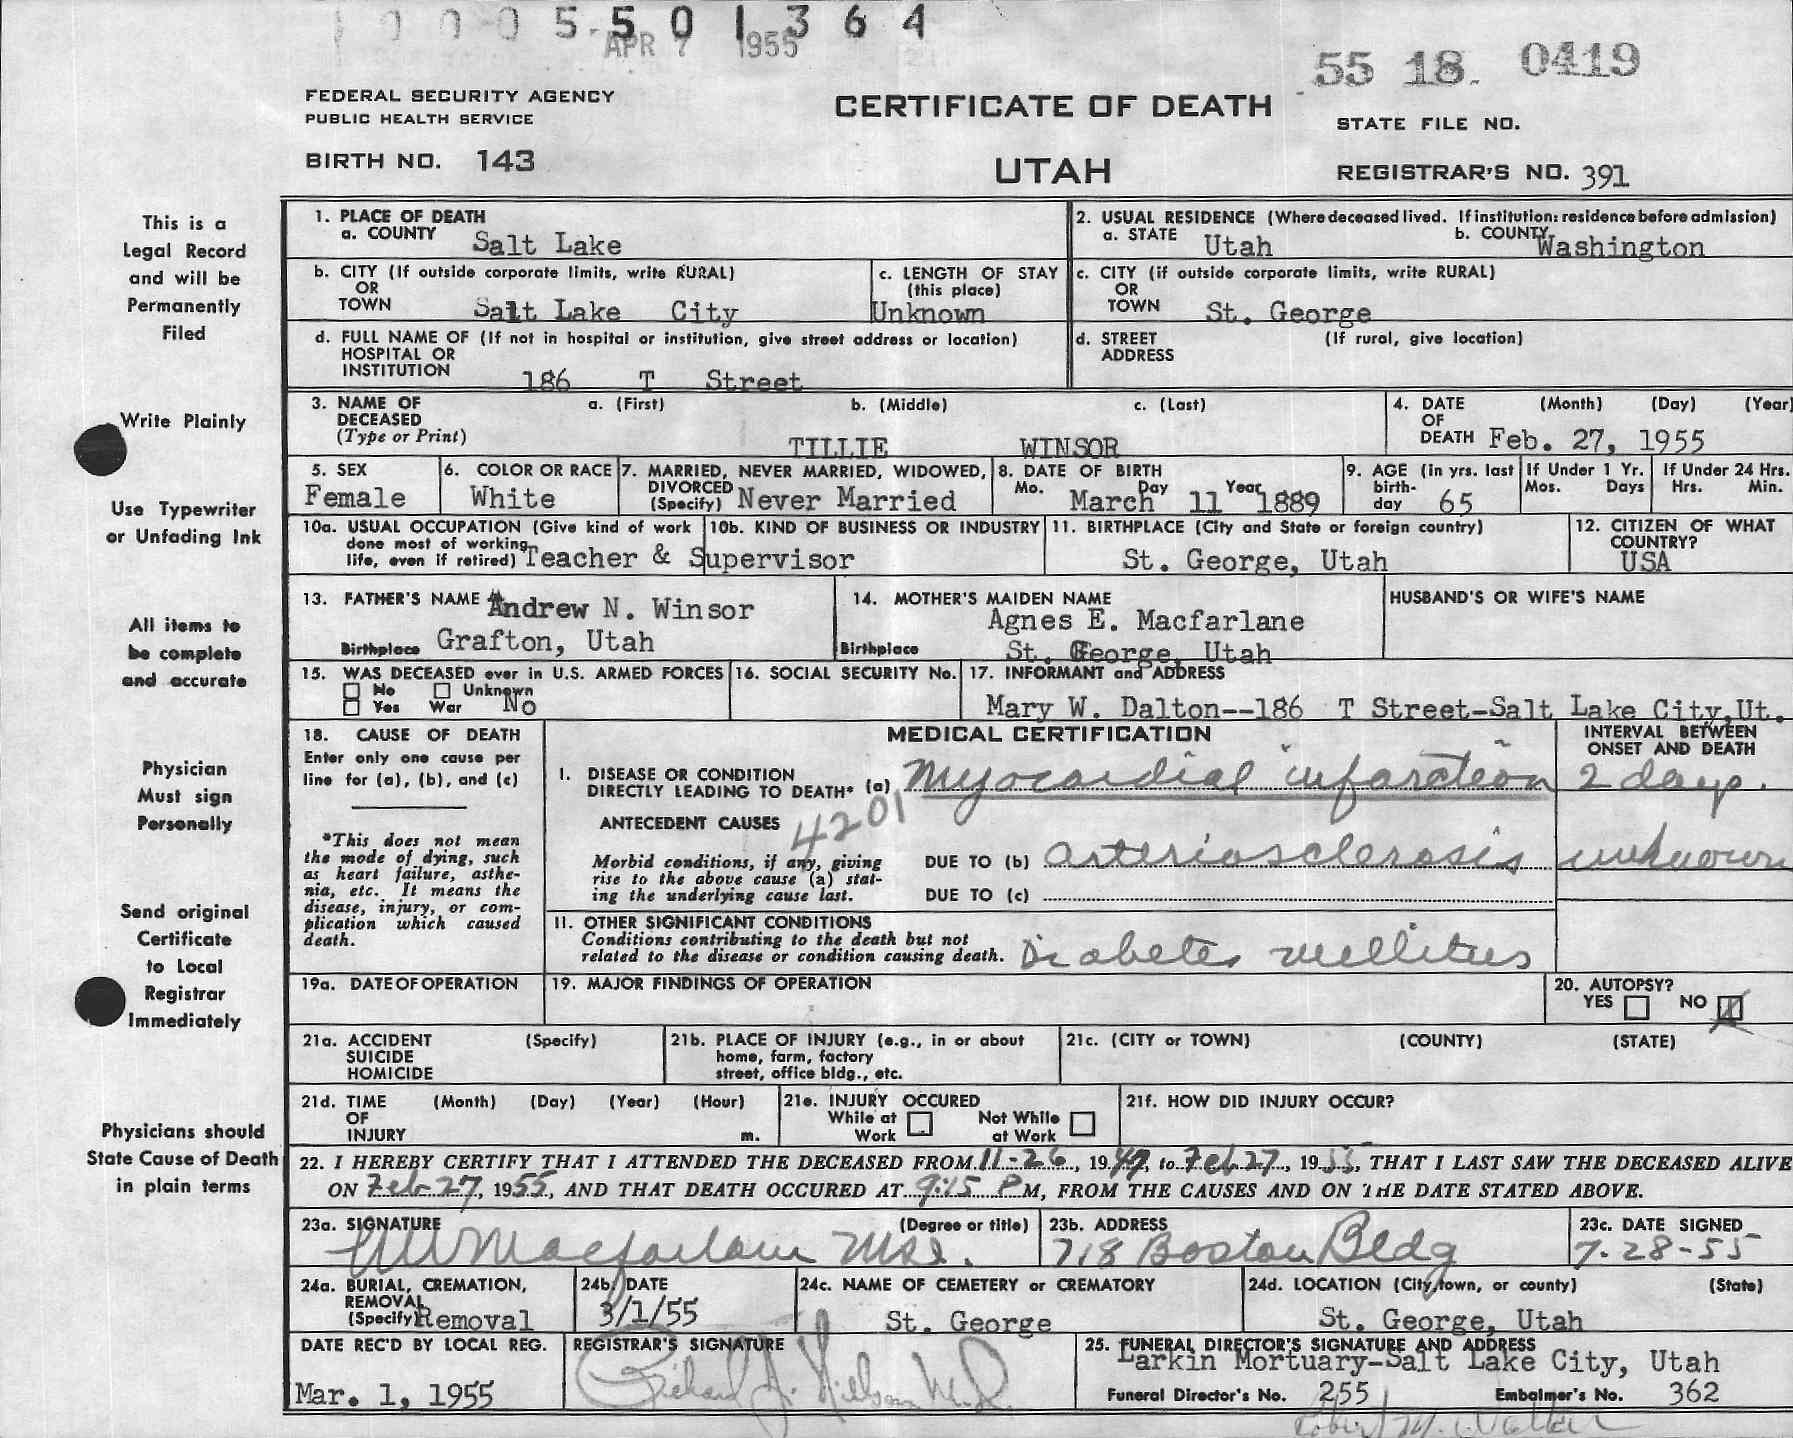 0 0 0 5-5 0 1 3 6 4
APR 7 1955
55 18. 0419
FEDERAL SECURITY AGENCY
PUBLIC HEALTH SERVICE
CERTIFICATE OF DEATH
STATE FILE NO.
BIRTH NO. 143
UTAH
REGISTRAR'S NO. 391
This is a
Legal Record
and will be
Permanently
Filed
Write Plainly
Use Typewriter
or Unfading Ink
All items to
be complete
and accurate
Physician
Must sign
Personally
Send original
Certificate
to Local
Registrar
Immediately
Physicians should
State Cause of Death
in plain terms
1. PLACE OF DEATH
a. COUNTY Salt Lake
2. USUAL RESIDENCE (Where deceased lived. If institution: residence before admission)
a. STATE Utah b. COUNTY Washington
b. CITY (If outside corporate limits, write RURAL)
OR
TOWN Salt Lake City
c. LENGTH OF STAY
(this place)
Unknown
c. CITY (if outside corporate limits, write RURAL)
OR
TOWN St. George
d. FULL NAME OF (If not in hospital or institution, give street address or location)
HOSPITAL OR
INSTITUTION 186 T Street
d. STREET (If rural, give location)
ADDRESS
3. NAME OF a. (First) b. (Middle) c. (Last)
DECEASED
(Type or Print) TILLIE WINSOR
4. DATE (Month) (Day) (Year)
OF
DEATH Feb. 27, 1955
5. SEX
Female
6. COLOR OR RACE
White
7. MARRIED, NEVER MARRIED, WIDOWED,
DIVORCED
(Specify) Never Married
8. DATE OF BIRTH
Mo. Day Year
March 11 1889
9. AGE (in yrs. last
birth-
day 65
If Under 1 Yr.
Mos. Days
If Under 24 Hrs.
Hrs. Min.
10a. USUAL OCCUPATION (Give kind of work
done most of working
life, even if retired) Teacher & Supervisor
10b. KIND OF BUSINESS OR INDUSTRY
11. BIRTHPLACE (City and State or foreign country)
St. George, Utah
12. CITIZEN OF WHAT
COUNTRY?
USA
13. FATHER'S NAME Andrew N. Winsor
Birthplace Grafton, Utah
14. MOTHER'S MAIDEN NAME
Agnes E. Macfarlane
Birthplace St. George, Utah
HUSBAND'S OR WIFE'S NAME
15. WAS DECEASED ever in U.S. ARMED FORCES
No Unknown
Yes War No
16. SOCIAL SECURITY No.
17. INFORMANT and ADDRESS
Mary W. Dalton--186 T Street-Salt Lake City, Ut.
18. CAUSE OF DEATH
Enter only one cause per
line for (a), (b), and (c)
*This does not mean
the mode of dying, such
as heart failure, asthe-
nia, etc. It means the
disease, injury, or com-
plication which caused
death.
MEDICAL CERTIFICATION
INTERVAL BETWEEN
ONSET AND DEATH
I. DISEASE OR CONDITION
DIRECTLY LEADING TO DEATH* (a) Myocardial infarction 2 days.
ANTECEDENT CAUSES 4201
Morbid conditions, if any, giving
rise to the above cause (a) stat-
ing the underlying cause last.
DUE TO (b) arteriosclerosis unknown
DUE TO (c)
II. OTHER SIGNIFICANT CONDITIONS
Conditions contributing to the death but not
related to the disease or condition causing death. Diabetes mellitus
19a. DATE OF OPERATION
19. MAJOR FINDINGS OF OPERATION
20. AUTOPSY?
YES NO X
21a. ACCIDENT (Specify)
SUICIDE
HOMICIDE
21b. PLACE OF INJURY (e.g., in or about
home, farm, factory
street, office bldg., etc.
21c. (CITY or TOWN) (COUNTY) (STATE)
21d. TIME (Month) (Day) (Year) (Hour)
OF
INJURY m.
21e. INJURY OCCURED
While at Not While
Work at Work
21f. HOW DID INJURY OCCUR?
22. I HEREBY CERTIFY THAT I ATTENDED THE DECEASED FROM 11-26, 1949, to Feb 27, 1955, THAT I LAST SAW THE DECEASED ALIVE
ON Feb 27, 1955, AND THAT DEATH OCCURED AT 9:15 PM, FROM THE CAUSES AND ON THE DATE STATED ABOVE.
23a. SIGNATURE (Degree or title)
Macfarlane
23b. ADDRESS
718 Boston Bldg
23c. DATE SIGNED
7-28-55
24a. BURIAL, CREMATION,
REMOVAL
(Specify) Removal
24b. DATE
3/1/55
24c. NAME OF CEMETERY or CREMATORY
St. George
24d. LOCATION (City, town, or county) (State)
St. George, Utah
DATE REC'D BY LOCAL REG.
Mar. 1, 1955
REGISTRAR'S SIGNATURE
Richard A. Nielson M.D.
25. FUNERAL DIRECTOR'S SIGNATURE AND ADDRESS
Larkin Mortuary-Salt Lake City, Utah
Funeral Director's No. 255 Embalmer's No. 362
Robert M. Walker